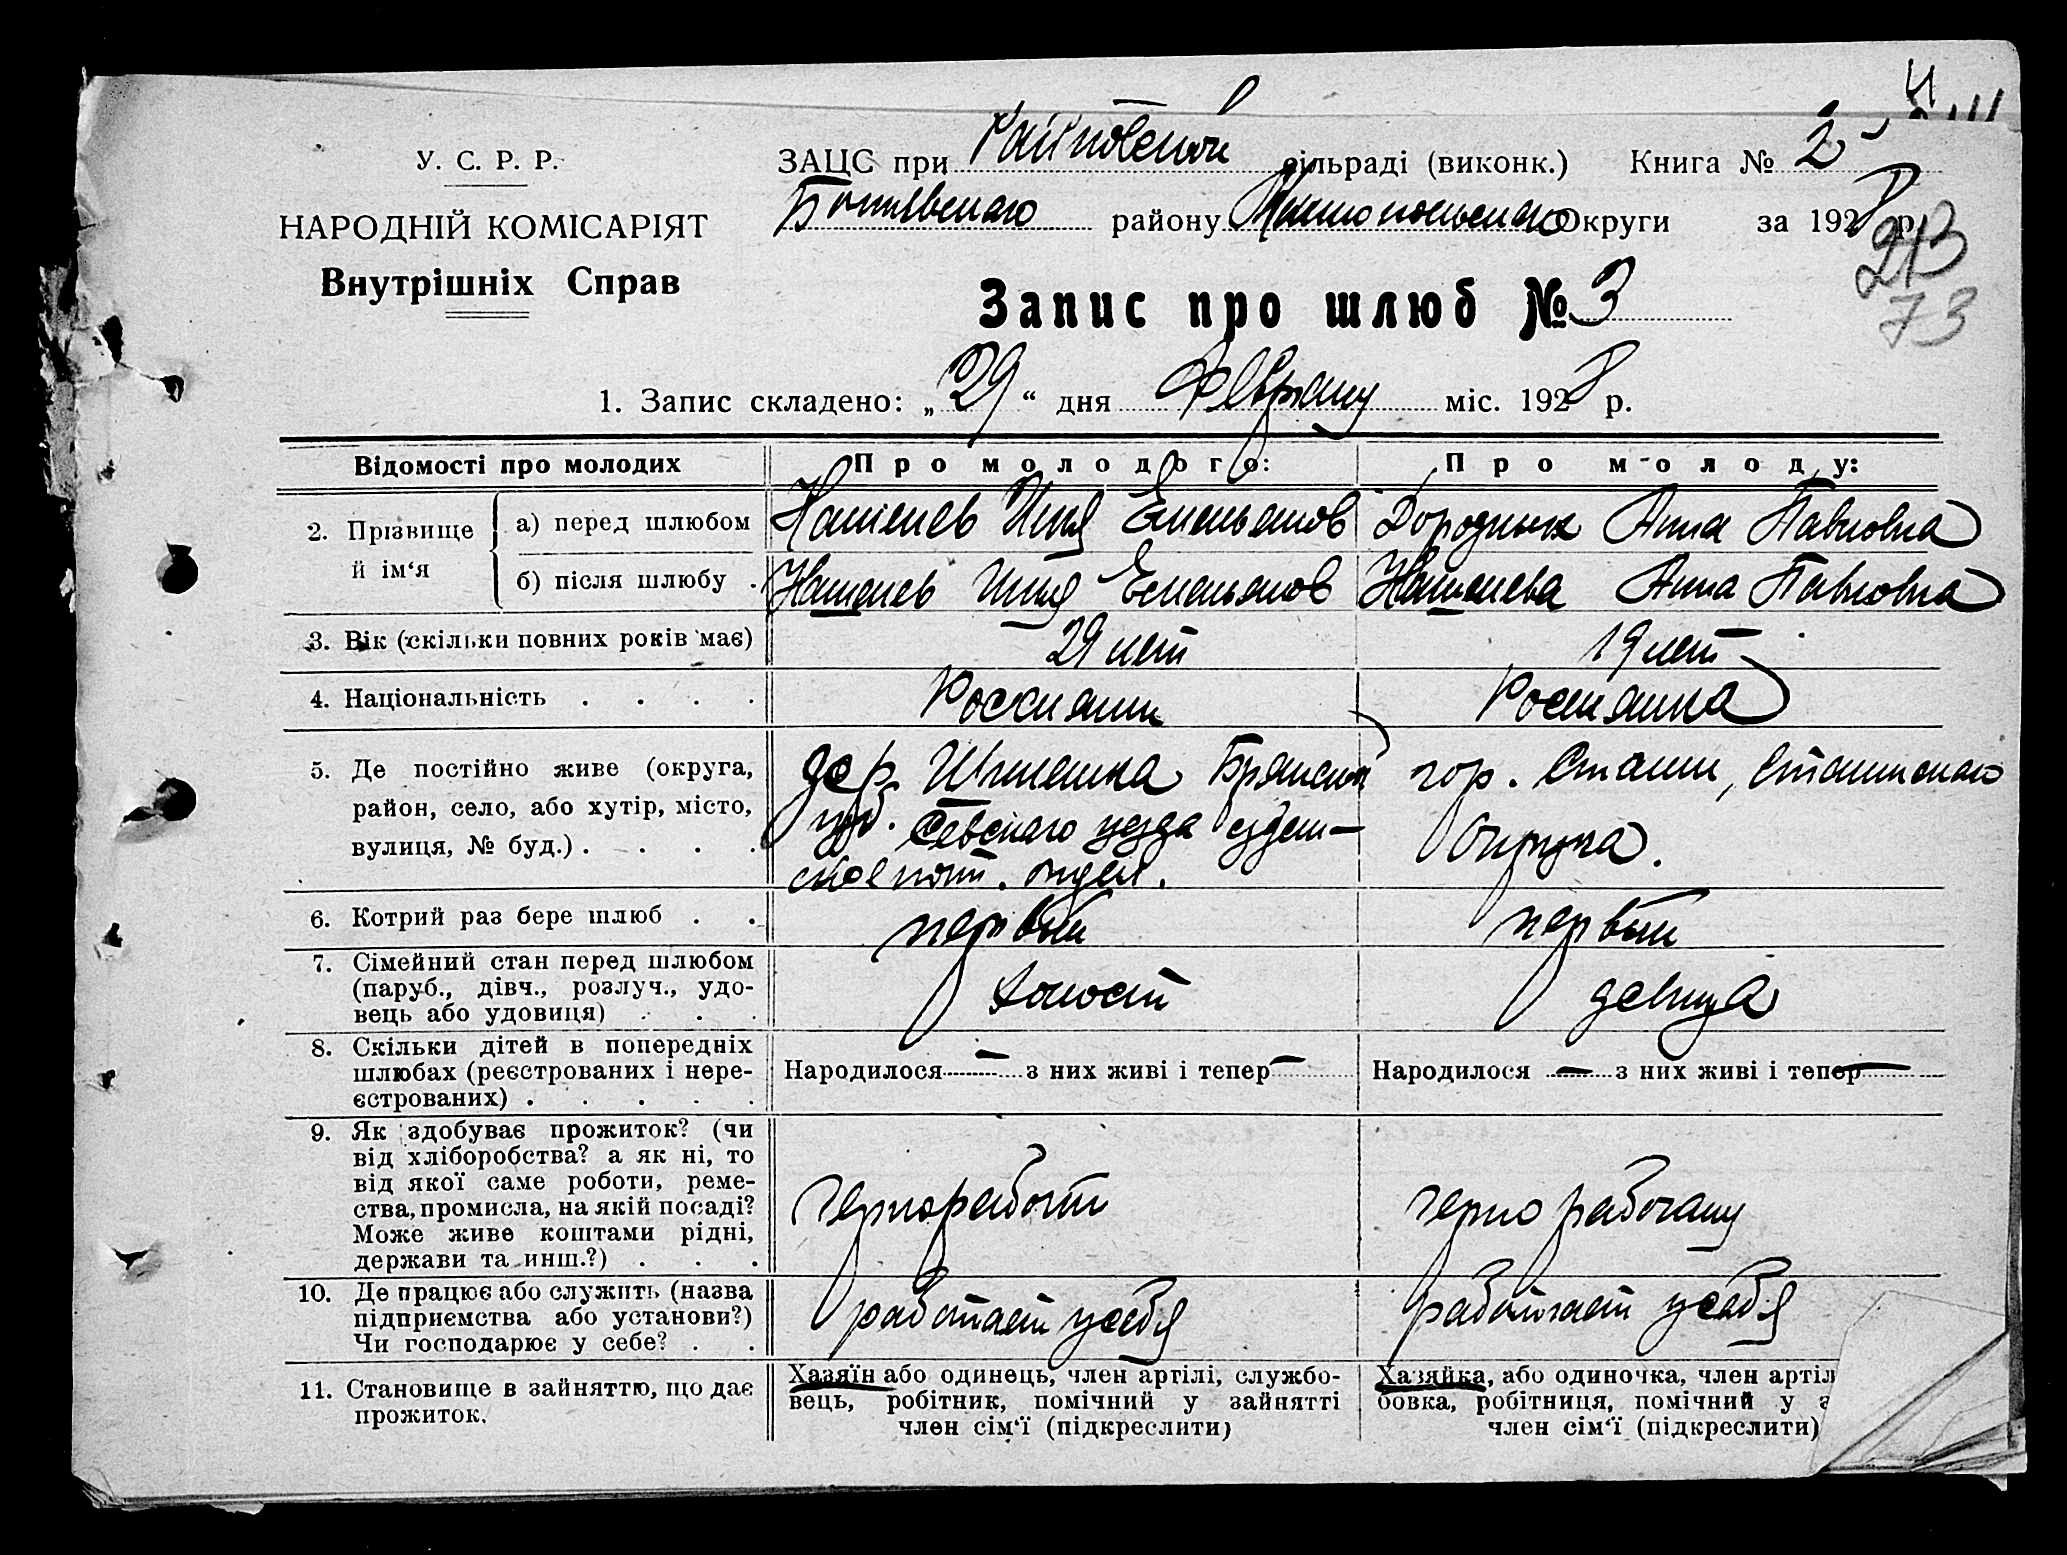 У. С. Р. Р.
НАРОДНІЙ КОМІСАРІЯТ
Внутрішніх Справ
ЗАЦС при сільраді (виконк.) Книга № 2
району Округи за 1928 р.
213
73
Запис про шлюб № 3
1. Запис складено: „29“ дня міс. 1928 р.
Відомості про молодих
Про молодого:
Про молоду:
2. Прізвище й ім‘я
а) перед шлюбом
Емельянов
Анна Павловна
б) після шлюбу .
Емельянов
Анна Павловна
3. Вік (скільки повних років має)
29 лет
19 лет
4. Національність . . . .
Россиянин
Россиянка
5. Де постійно живе (округа,
район, село, або хутір, місто,
вулиця, № буд.) . . . .
дер. Брянской
губ. Севского уезда
гор. Сталин, Сталинского
Округа.
6. Котрий раз бере шлюб . .
первый
первый
7. Сімейний стан перед шлюбом
(паруб., дівч., розлуч., удо-
вець або удовиця) . . .
холост
девица
8. Скільки дітей в попередніх
шлюбах (реєстрованих і нере-
єстрованих) . . . . .
Народилося — з них живі і тепер —
Народилося — з них живі і тепер —
9. Як здобуває прожиток? (чи
від хліборобства? а як ні, то
від якої саме роботи, реме-
ства, промисла, на якій посаді?
Може живе коштами рідні,
держави та инш.?) . . .
10. Де працює або служить (назва
підприємства або установи?)
Чи господарює у себе? . .
работает у себя
работает у себя
11. Становище в зайняттю, що дає
прожиток.
Хазяїн або одинець, член артілі, службо-
вець, робітник, помічний у зайнятті
член сім‘ї (підкреслити)
Хазяйка, або одиночка, член артіл
бовка, робітниця, помічний у з
член сім‘ї (підкреслити)